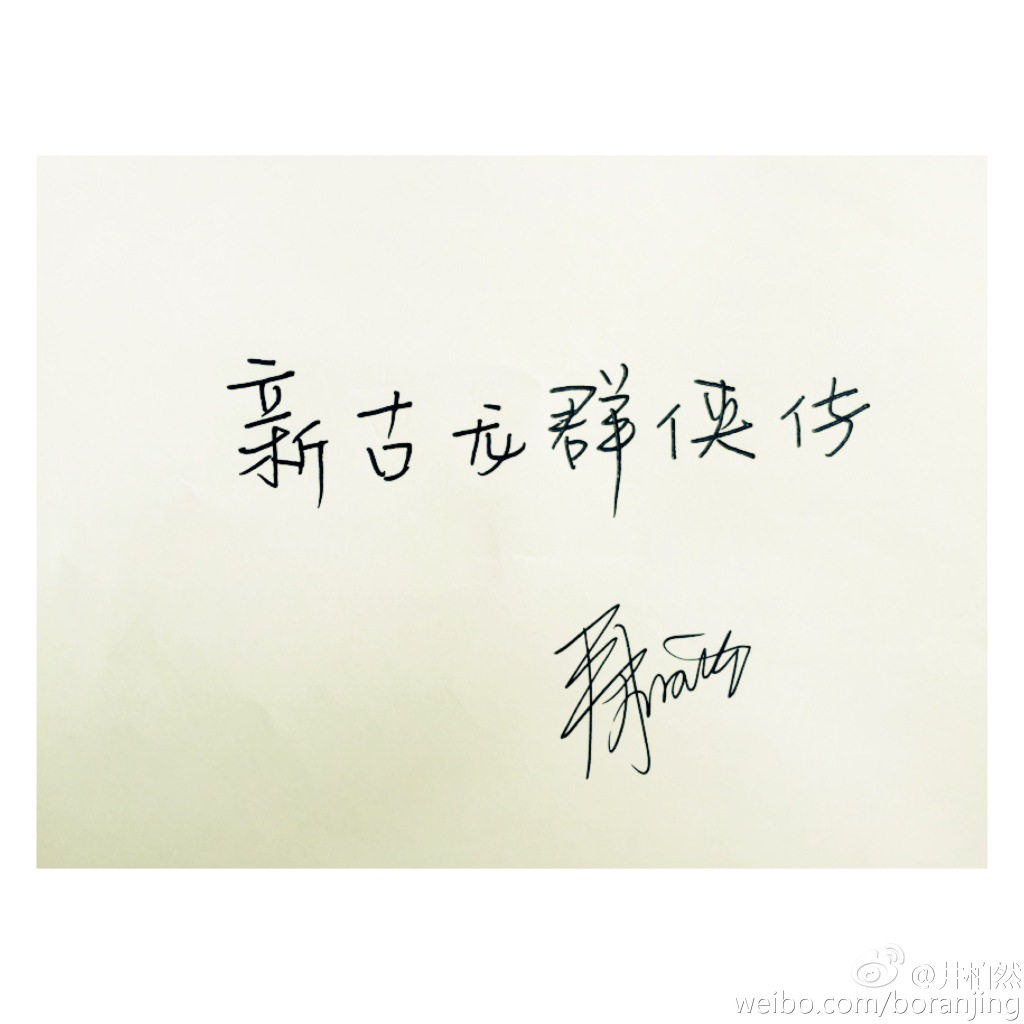 新古龙群侠传
@井柏然
weibo.com/boranjing